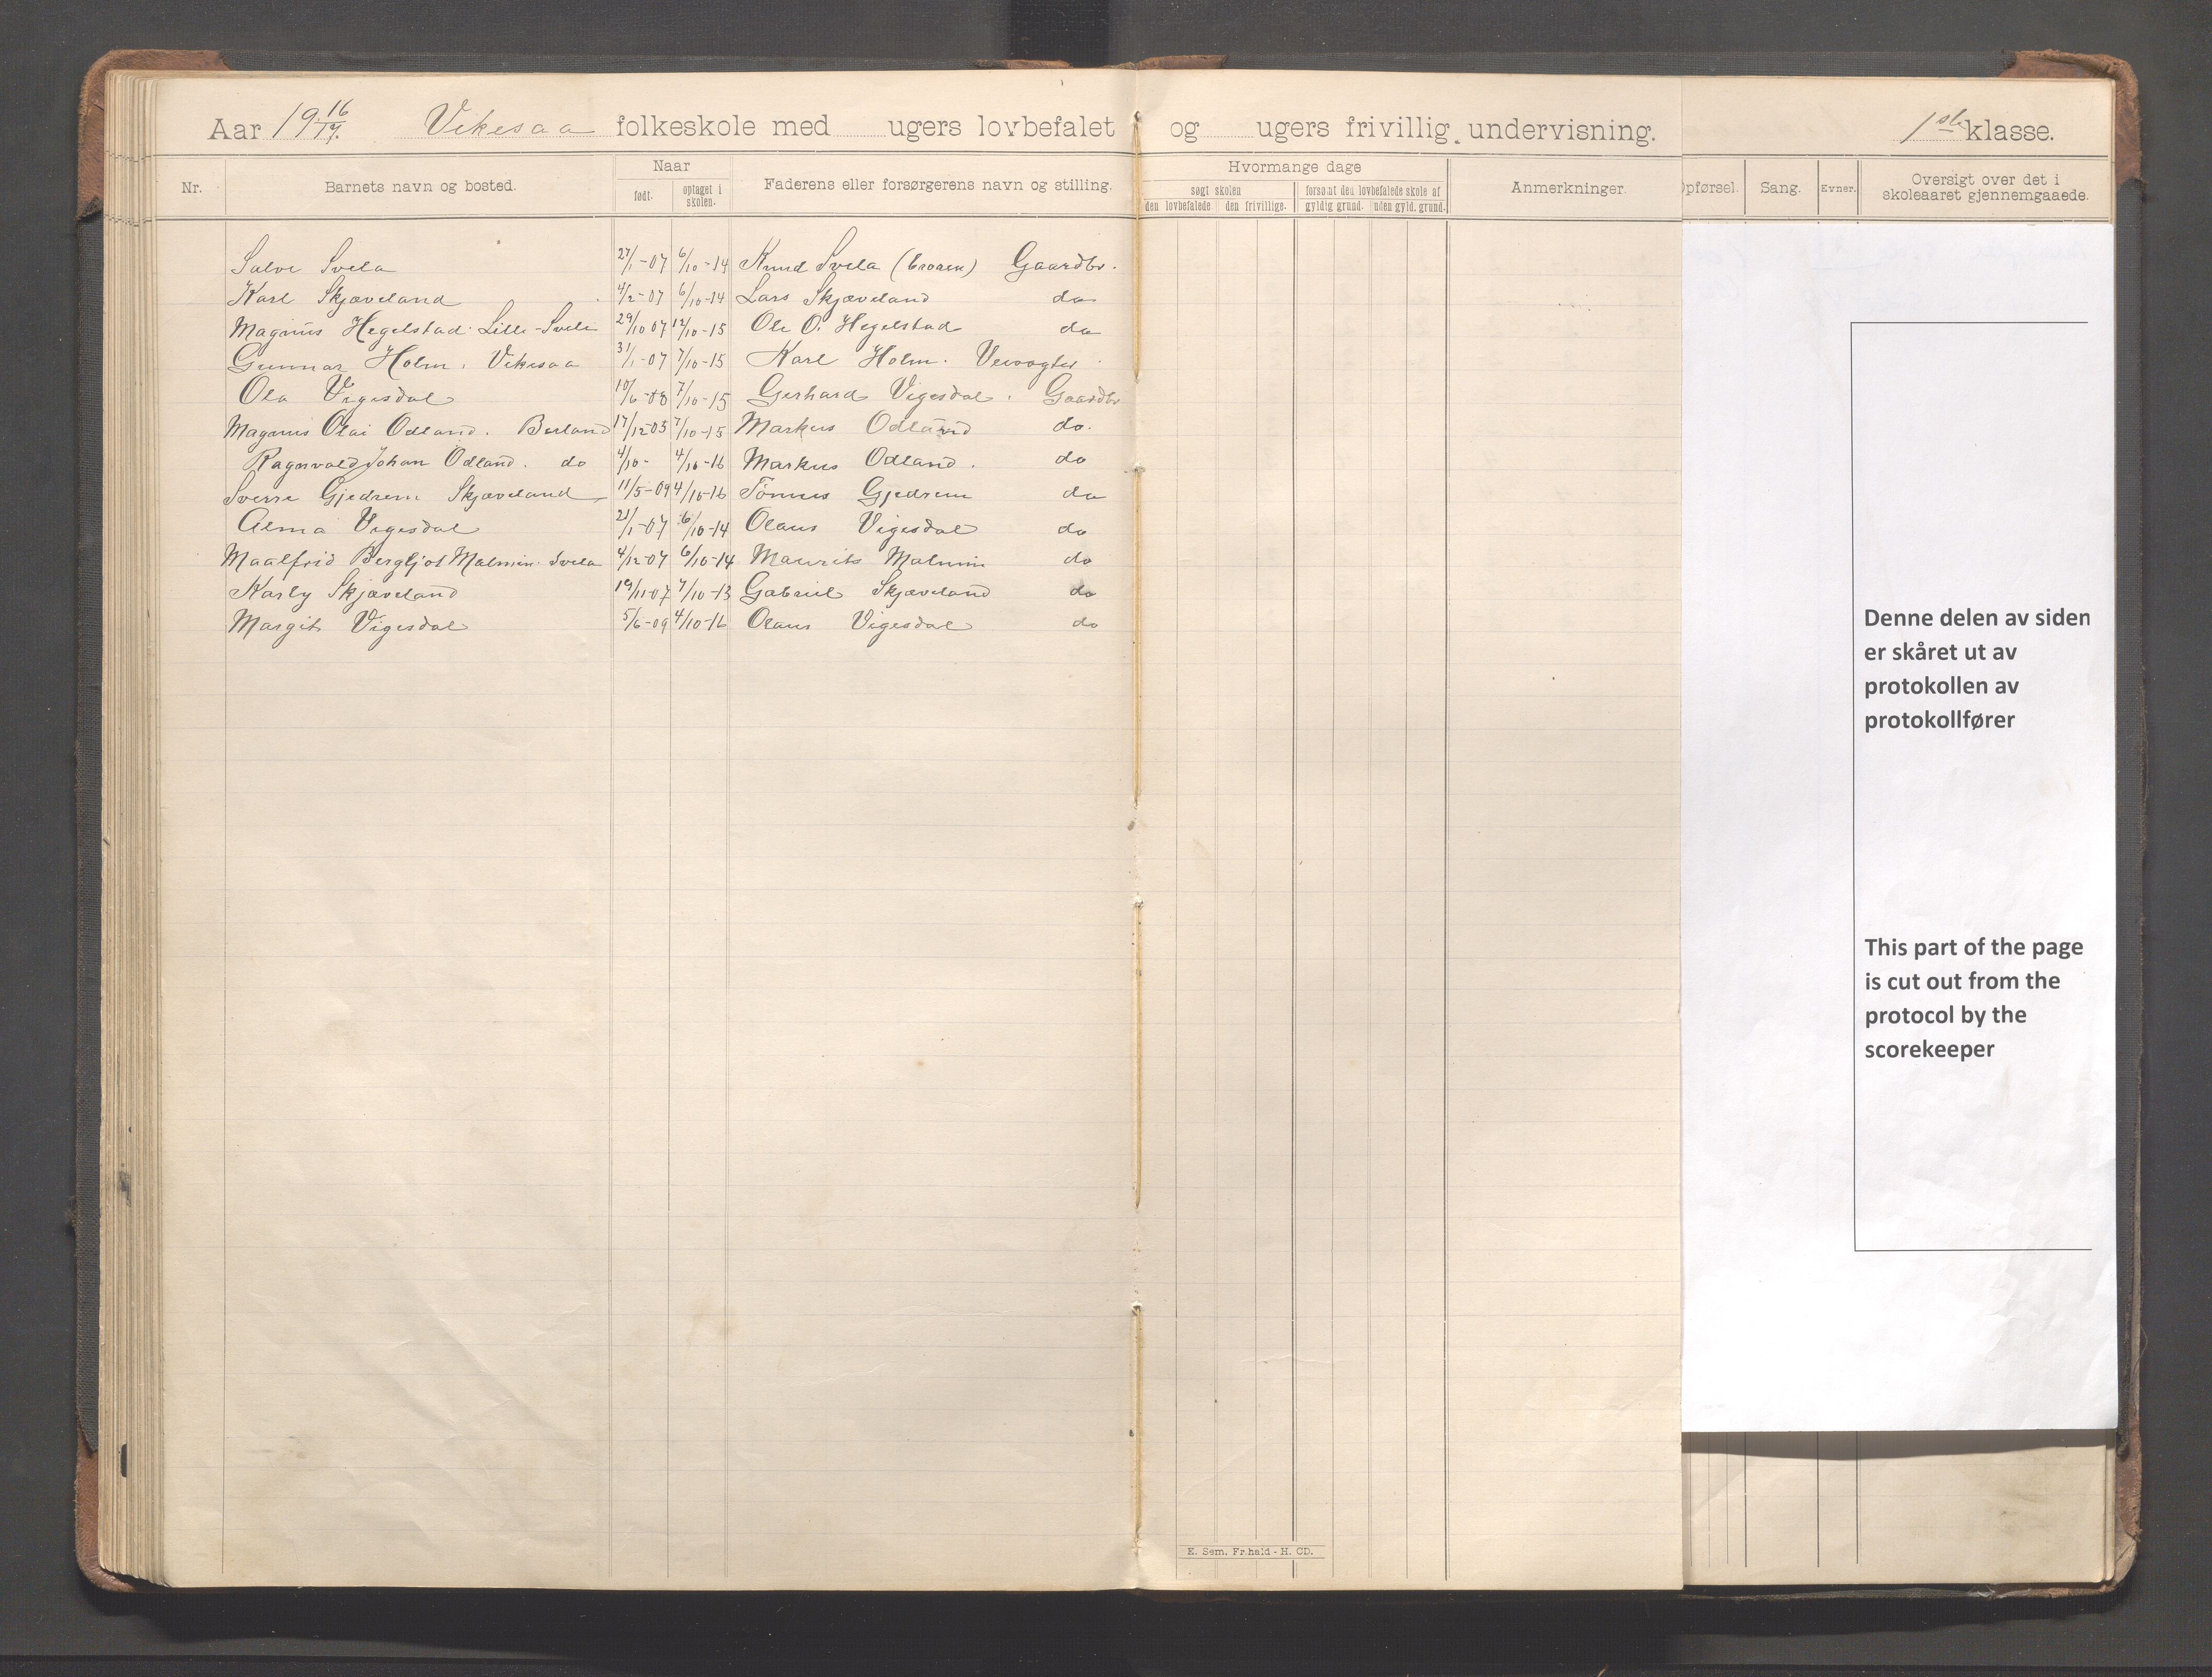 Aar 19 16/17. Vikesaa folkeskole med ugers lovbefalet og ugers frivillig undervisning. 1ste klasse.
Nr. Barnets navn og bosted. Naar født. optaget i skolen. Faderens eller forsørgerens navn og stilling. Hvormange dage søgt skolen den lovbefalede. den frivillige. forsømt den lovbefalede skole af gyldig grund. uden gyld. grund. Anmerkninger. Opførsel. Sang. Evner. Oversigt over det i skoleaaret gjennemgaaede.
Salve Svela 27/1-07 6/10-14 Knud Svela (broren) Gaardbr.
Karl Skjæveland 4/2-07 6/10-14 Lars Skjæveland do
Magnus Hegelstad Lille-Svela 29/10 07 12/10-15 Ole O. Hegelstad do
Gunnar Holm. Vikesaa 31/1-07 7/10-15 Karl Holm. Veivogter
Ola Vigesdal 10/6-08 7/10-15 Gerhard Vigesdal. Gaardbr
Magnus Olai Odland. Berland 17/12-05 7/10-15 Markus Odland do.
Ragnvald Johan Odland. do 4/10- 4/10-16 Markus Odland. do
Sverre Gjedrem Skjæveland 11/5-09 4/10-16 Tönnes Gjedrem do
Alma Vigesdal 21/1-07 6/10-14 Olaus Vigesdal do
Maalfrid Bergljot Malmin Svela 4/12-07 6/10-14 Maurits Malmin do
Karly Skjæveland 19/11-07 7/10-13 Gabriel Skjæveland do
Margit Vigesdal 5/6-09 4/10-16 Olaus Vigesdal do
Denne delen av siden
er skåret ut av
protokollen av
protokollfører
This part of the page
is cut out from the
protocol by the
scorekeeper
E. Sem. Fr.hald - H. CD.